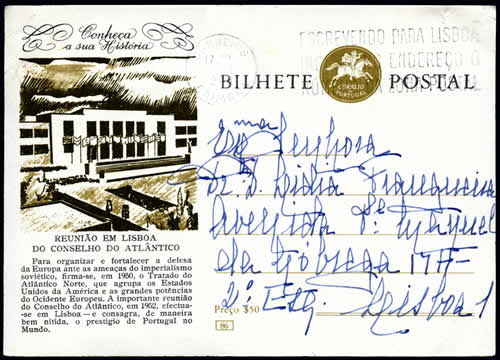 Conheça
a sua História
ESCREVENDO PARA LISBOA
ENDEREÇO O
BILHETE POSTAL
CORREIO
PORTUGAL
Exma Senhora
D. Lidia
Avenida Pe. Manuel
da Nóbrega
2º Esq. Lisboa 1
REUNIÃO EM LISBOA
DO CONSELHO DO ATLÂNTICO
Para organizar e fortalecer a defesa
da Europa ante as ameaças do imperialismo
soviético, firma-se, em 1950, o Tratado do
Atlântico Norte, que agrupa os Estados
Unidos da América e as grandes potências
do Ocidente Europeu. A importante reunião
do Conselho do Atlântico, em 1902, efectua-
-se em Lisboa — e consagra, de maneira
bem nítida, o prestígio de Portugal no
Mundo.
Preço $50
86